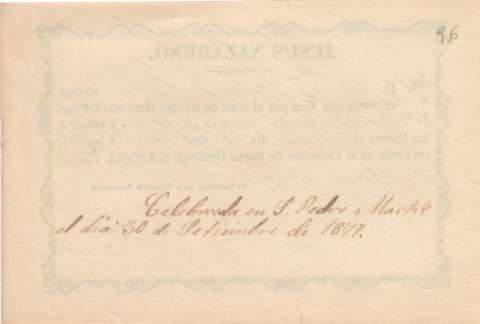 96
JESUS NAZARENO.
Sr. D.
sírvase
celebrar una Misa por el alma de nuestro Hermano difunto
D. y asistir á
las honras el dia de á las
en punto en el Convento de Santo Domingo el Antiguo.
Celebrada en S. Pedro Martir
el dia 30 de Setiembre de 1877.